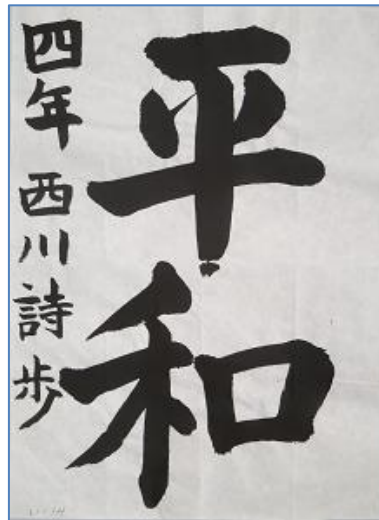 平和
四年 西川詩歩